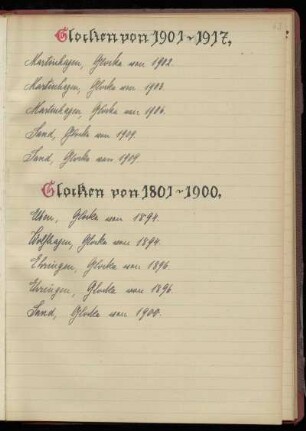 Glocken von 1901-1917.
Martinhagen, Glocke von 1902.
Martinhagen, Glocke von 1903.
Martinhagen, Glocke von 1906.
Sand, Glocke von 1909.
Sand, Glocke von 1909.
Glocken von 1801-1900.
Elben, Glocke von 1894.
Wolfhagen, Glocke von 1894.
Ehringen, Glocke von 1896.
Ehringen, Glocke von 1896.
Sand, Glocke von 1900.